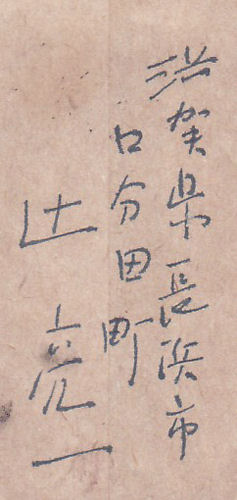 滋賀県長浜市
口分田町
辻亮一